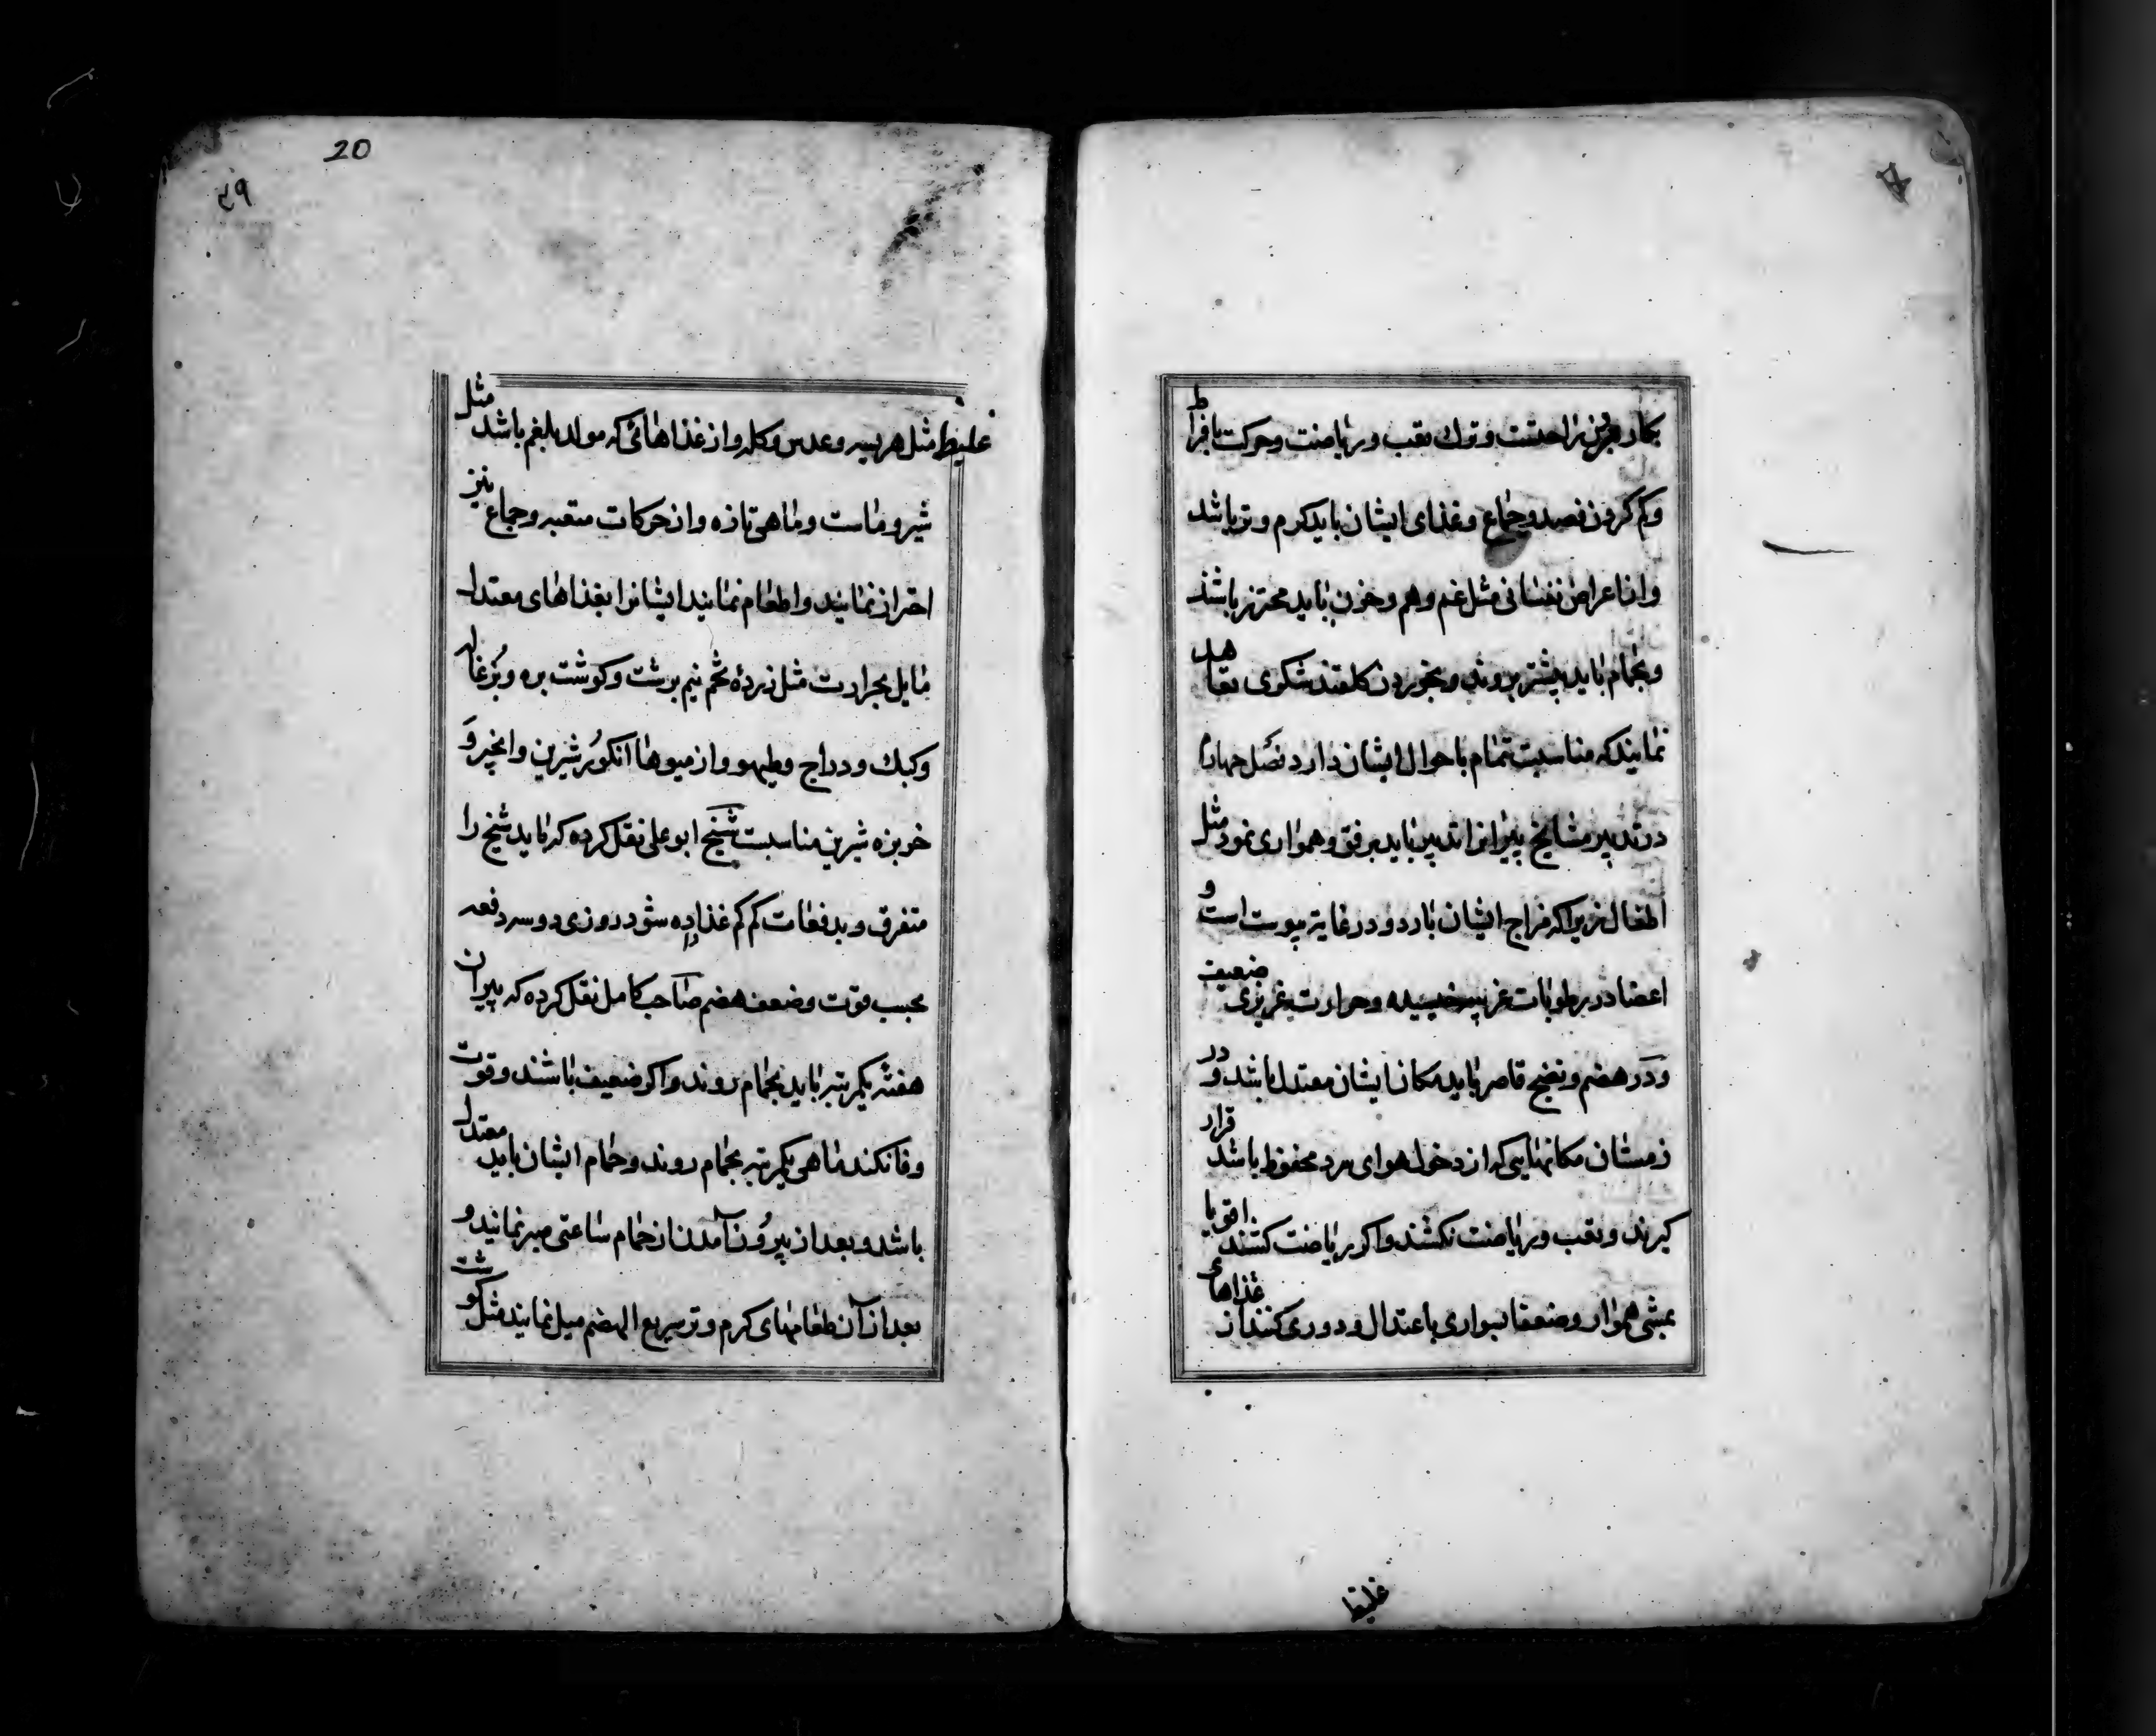 بکار بردن راحتست و ترك تعب و ریاضت و حرکت بافراط
و کم کردن فصد و جماع و غذای ایشان باید کرم و تر باشد
و از اعراض نفسانی مثل غم و هم و حزن باید محترز باشند
و بحمام باید پیشتر بروند و بخوردن کلقند شکری تعاهد
نمایند که مناسبت تمام باحوال ایشان دارد فصل چهارم
در تدبیر مشایخ پیرانرا تدبیر باید برفق و همواری نمود مثل
اطفال زیرا که مزاج ایشان بارد و در غایة یبوست است و
اعضا در رطوبات غریبه خیسیده و حرارت غریزی ضعیف
و در هضم و نضج قاصر باید مکان ایشان معتدل باشد و در
زمستان مکانهایی که از دخول هوای سرد محفوظ باشد قرار
کیرند و تعب و ریاضت نکشند و اکر ریاضت کشند اقویا
بمشی هموار و ضعفا بسواری باعتدال و دوری کنند از غذاهای
غلیظ
20
۳۹
غلیظ مثل هریسه و عدس و کله و از غذاهائی که مولد بلغم باشد مثل
شیر و ماست و ماهی تازه و از حرکات متعبه و جماع نیز
احتراز نمایند و اطعام نمایند ایشانرا بغذاهای معتدل
مایل بحرارت مثل زردهٔ تخم نیم برشت و کوشت بره و بزغاله
و کبك و دراج و طیهو و از میوها انکور شیرین و انجیر و
خربزه شیرین مناسبت شیخ ابو علی نقل کرده که باید شیخ را
متفرق و بدفعات کم کم غذا داده شود در روزی دو سه دفعه
بحسب قوت و ضعف هضم صاحب کامل نقل کرده که پیران
هفته یکمرتبه باید بحمام روند و اکر ضعیف باشند و قوت
وفا نکند ماهی یکمرتبه بحمام روند و حمام ایشان باید معتدل
باشد و بعد از بیرون آمدن از حمام ساعتی صبر نمایند و
بعد از آن طعامهای کرم و تر سریع الهضم میل نمایند مثل کوشت